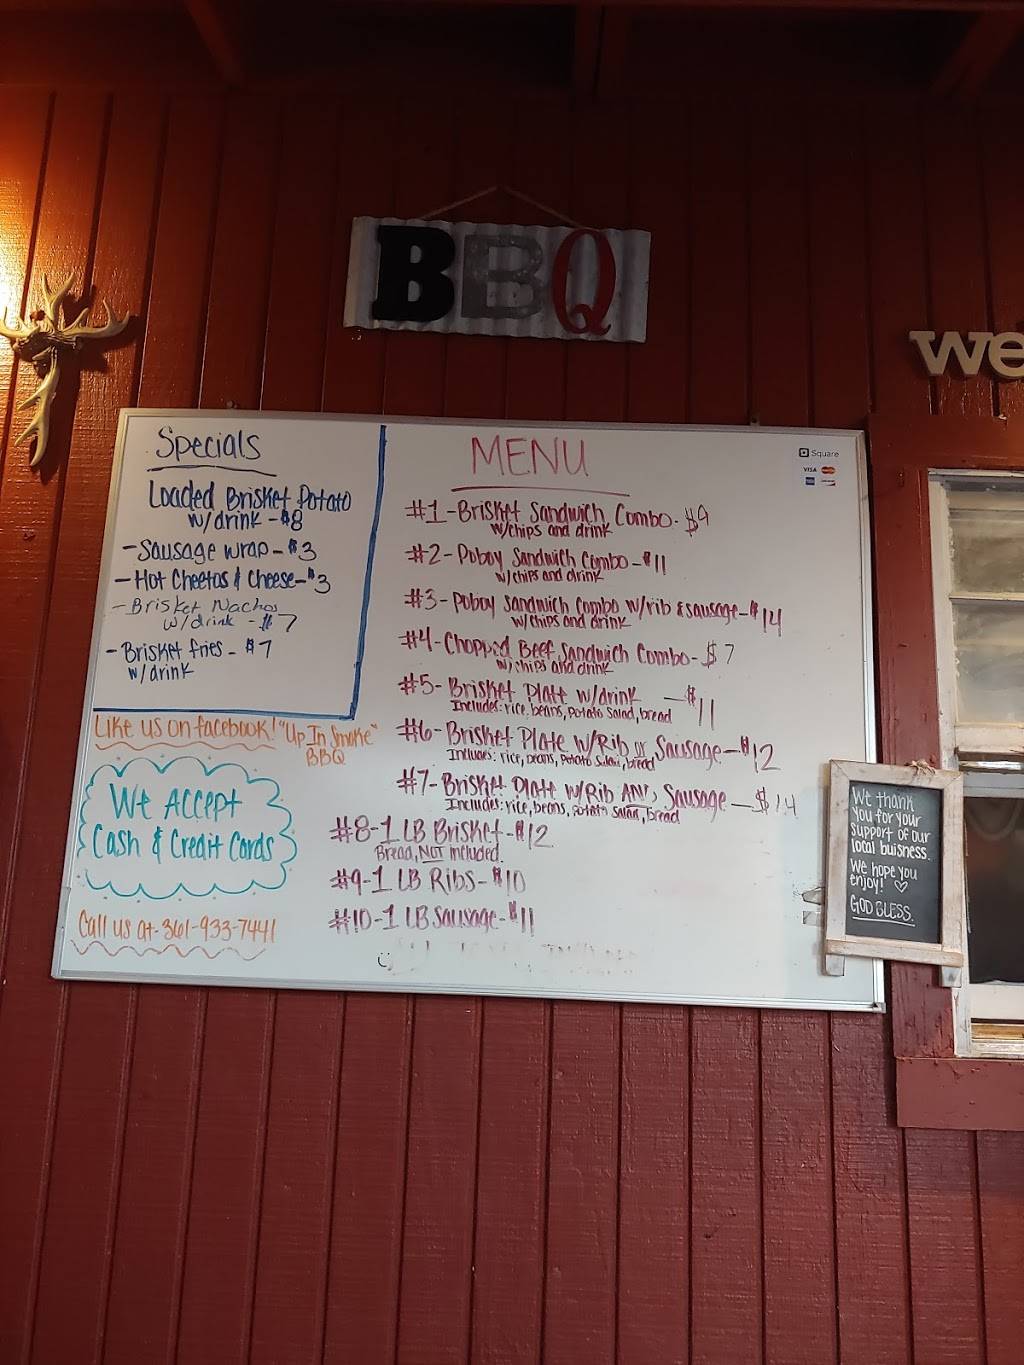 BBQ
we
Specials
Loaded Brisket Potato
w/drink - $8
- Sausage wrap - $3
- Hot Cheetos & Cheese - $3
- Brisket Nachos
w/drink - $7
- Brisket fries - $7
w/drink
Like us on facebook! "Up In Smoke"
BBQ
We Accept
Cash & Credit Cards
Call us at - 361-933-7441
MENU
Square
VISA
#1 - Brisket Sandwich Combo - $9
w/chips and drink
#2 - Poboy Sandwich Combo - $11
w/chips and drink
#3 - Poboy Sandwich Combo w/rib & sausage - $14
w/chips and drink
#4 - Chopped Beef Sandwich Combo - $7
w/chips and drink
#5 - Brisket Plate w/drink - $11
Includes: rice, beans, potato salad, bread
#6 - Brisket Plate w/Rib or Sausage - $12
Includes: rice, beans, potato salad, bread
#7 - Brisket Plate w/Rib AND Sausage - $14
Includes: rice, beans, potato salad, bread
#8 - 1 LB Brisket - $12
Bread, NOT included.
#9 - 1 LB Ribs - $10
#10 - 1 LB Sausage - $11
We thank
you for your
support of our
local buisness.
We hope you
enjoy! ♡
GOD BLESS.